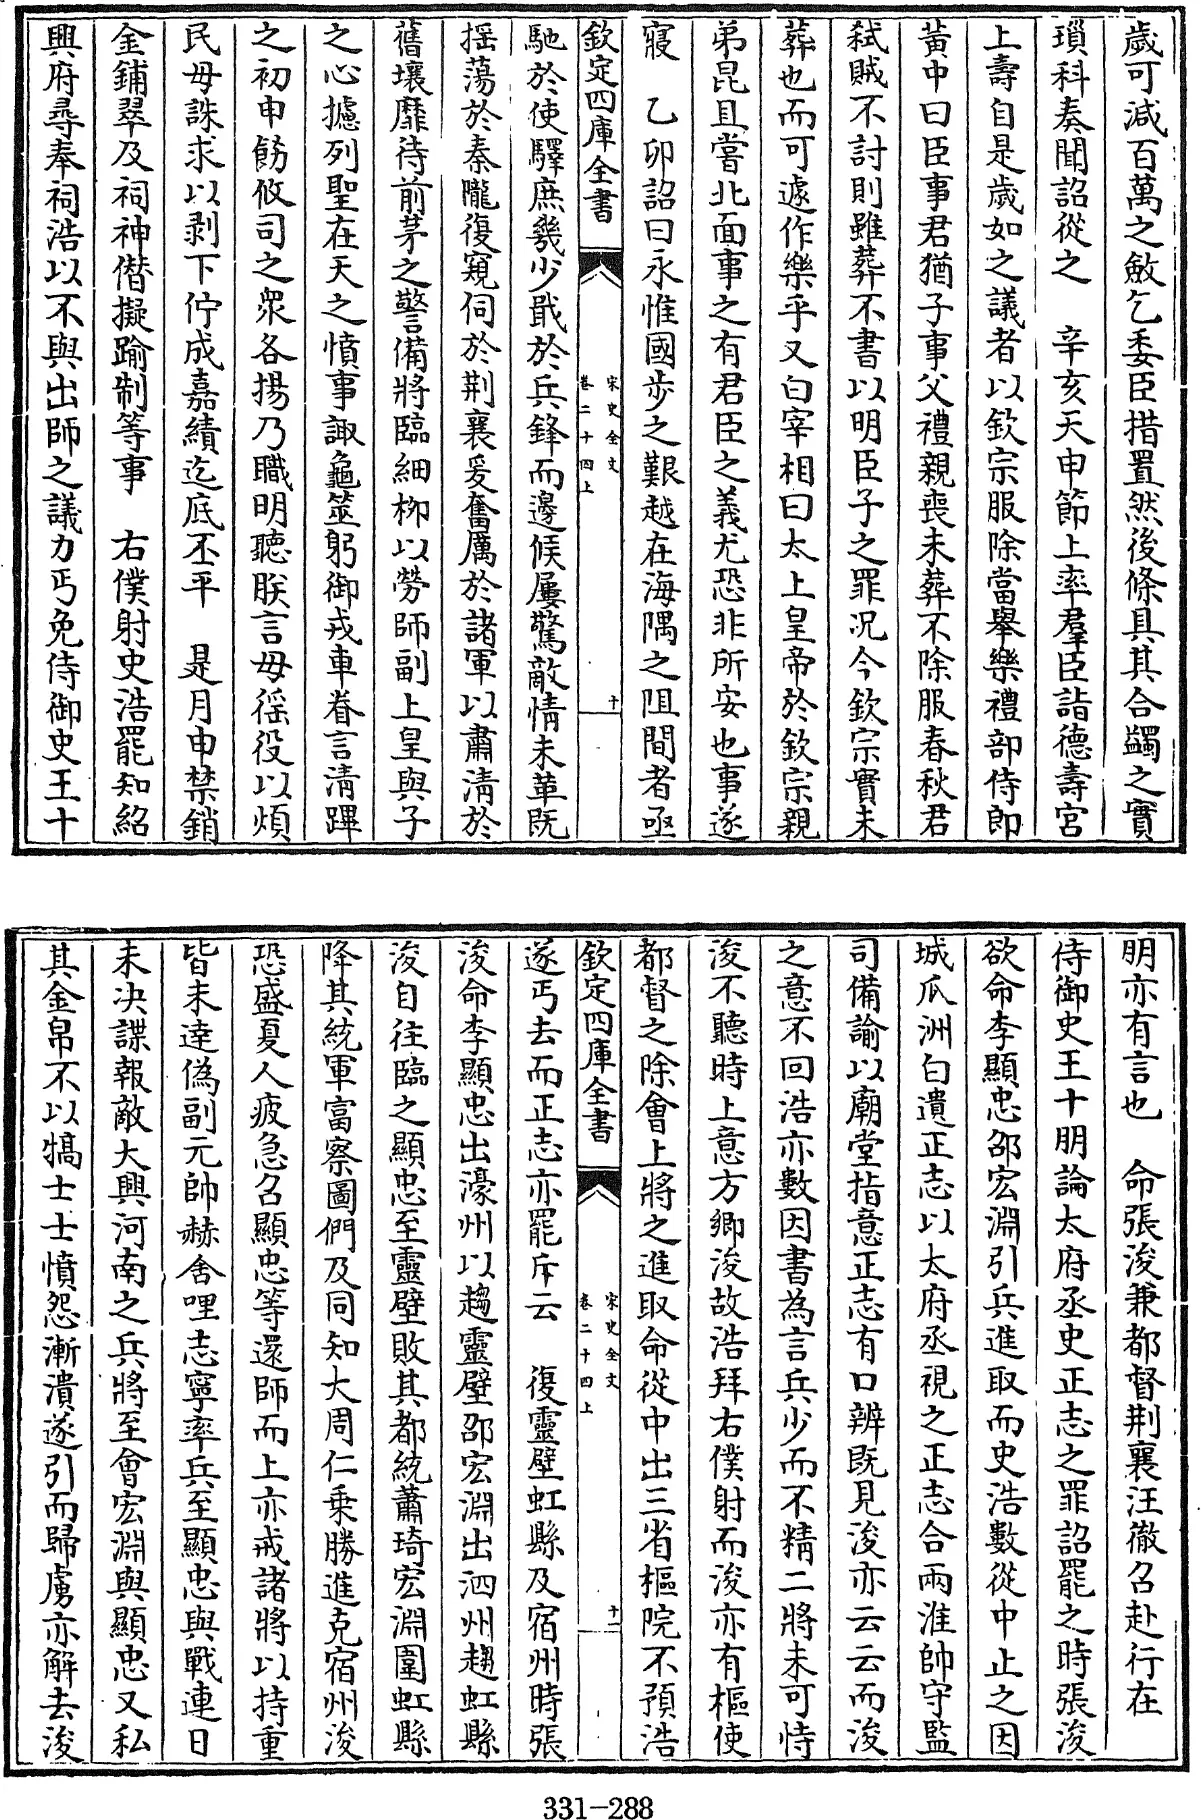 歲可減百萬之斂乞委臣措置然後條具其合蠲之實
瑣科奏聞詔從之　辛亥天申節上率羣臣詣德壽宮
上壽自是歲如之議者以欽宗服除當舉樂禮部侍郎
黃中曰臣事君猶子事父禮親喪未葬不除服春秋君
弒賊不討則雖葬不書以明臣子之罪況今欽宗實未
葬也而可遽作樂乎又白宰相曰太上皇帝於欽宗親
弟昆且嘗北面事之有君臣之義尤恐非所安也事遂
寢　乙卯詔曰永惟國步之艱越在海隅之阻間者亟
欽定四庫全書
宋史全文
卷二十四上
十
馳於使驛庶幾少戢於兵鋒而邊候屢驚敵情未革既
揺蕩於秦隴復窺伺於荆襄爰奮厲於諸軍以肅清於
舊壤靡待前茅之警備將臨細柳以勞師副上皇與子
之心攄列聖在天之憤事諏龜筮躬御戎車眷言清蹕
之初申飭攸司之衆各揚乃職明聽朕言毋徭役以煩
民毋誅求以剥下佇成嘉績迄底丕平　是月申禁銷
金鋪翠及祠神僣擬踰制等事　右僕射史浩罷知紹
興府尋奉祠浩以不與出師之議力丐免侍御史王十
明亦有言也　命張浚兼都督荆襄汪徹召赴行在
侍御史王十朋論太府丞史正志之罪詔罷之時張浚
欲命李顯忠邵宏淵引兵進取而史浩數從中止之因
城瓜洲白遣正志以太府丞視之正志合兩淮帥守監
司備諭以廟堂指意正志有口辨既見浚亦云云而浚
之意不回浩亦數因書為言兵少而不精二將未可恃
浚不聽時上意方鄉浚故浩拜右僕射而浚亦有樞使
都督之除會上將之進取命從中出三省樞院不預浩
欽定四庫全書
宋史全文
卷二十四上
十一
遂丐去而正志亦罷斥云　復靈壁虹縣及宿州時張
浚命李顯忠出濠州以趨靈壁邵宏淵出泗州趨虹縣
浚自往臨之顯忠至靈壁敗其都統蕭琦宏淵圍虹縣
降其統軍富察圖們及同知大周仁乗勝進克宿州浚
恐盛夏人疲急召顯忠等還師而上亦戒諸將以持重
皆未達偽副元帥赫舍哩志寧率兵至顯忠與戰連日
未决諜報敵大興河南之兵將至會宏淵與顯忠又私
其金帛不以犒士士憤怨漸潰遂引而歸虜亦解去浚
331-288